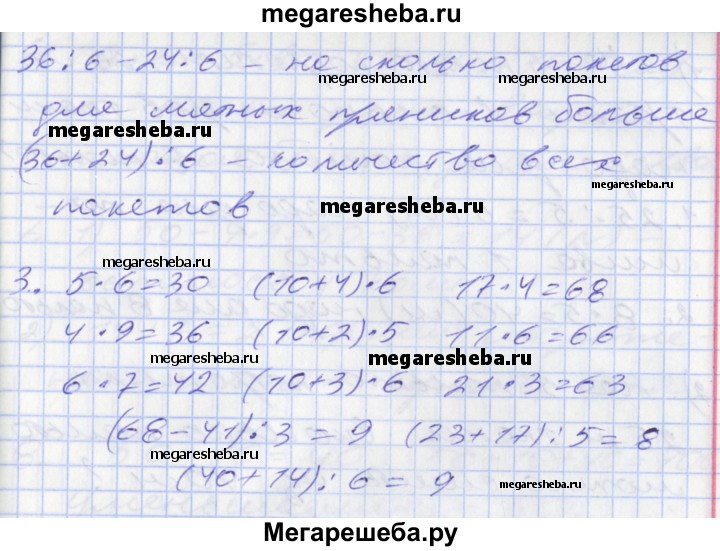 megaresheba.ru
36 : 6 - 24 : 6 - на сколько пакетов
megaresheba.ru megaresheba.ru
для мятных пряников больше
megaresheba.ru megaresheba.ru
(36+24) : 6 - количество всех
megaresheba.ru
пакетов megaresheba.ru
megaresheba.ru megaresheba.ru
3. 5 · 6 = 30 (10+4) · 6 17 · 4 = 68
4 · 9 = 36 (10+2) · 5 11 · 6 = 66
megaresheba.ru megaresheba.ru
6 · 7 = 42 (10+3) · 6 21 · 3 = 63
(68-41) : 3 = 9 (23+17) : 5 = 8
megaresheba.ru
(40+14) : 6 = 9 megaresheba.ru
Мегарешеба.ру